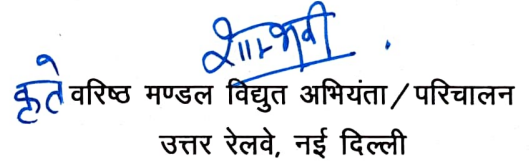 शाम्भवी
कृते वरिष्ठ मण्डल विद्युत अभियंता/परिचालन
उत्तर रेलवे, नई दिल्ली